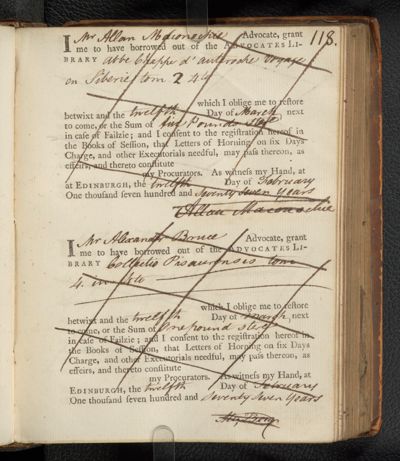 118.
I Mr Allan Maconochie Advocate, grant
me to have borrowed out of the ADVOCATES LI-
BRARY abbe Chappe d'auteroche Voyage
en Siberie tom 2 4to
which I oblige me to restore
betwixt and the twelfth Day of March next
to come, or the Sum of five Pounds sterg
in case of Failzie; and I consent to the registration hereof in
the Books of Session, that Letters of Horning on six Days
Charge, and other Executorials needful, may pass thereon, as
effeirs, and thereto constitute
my Procurators. As witness my Hand, at
at EDINBURGH, the twelfth Day of February
One thousand seven hundred and Seventy Seven Years
Allan Maconochie
I Mr Alexander Bruce Advocate, grant
me to have borrowed out of the ADVOCATES LI-
BRARY Collectio Pisaurensis tom
4. in 4to
which I oblige me to restore
betwixt and the twelfth Day of March, next
to come, or the Sum of One pound sterg
in case of Failzie; and I consent to the registration hereof in
the Books of Session, that Letters of Horning on six Days
Charge, and other Executorials needful, may pass thereon, as
effeirs, and thereto constitute
my Procurators. As witness my Hand, at
EDINBURGH, the twelfth Day of February
One thousand seven hundred and Seventy Seven Years